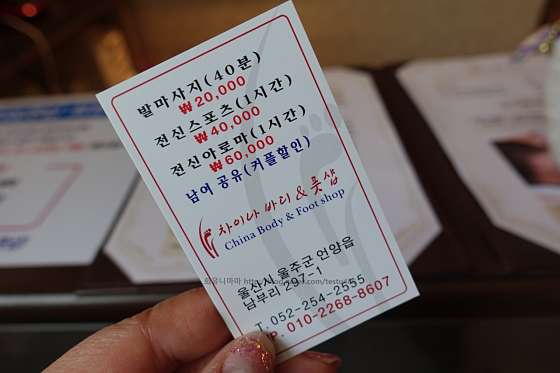 발마사지(40분)
₩20,000
전신스포츠(1시간)
₩40,000
전신아로마(1시간)
₩60,000
남여 공유(커플할인)
차이나 바디 & 풋 샵
China Body & Foot shop
울산시 울주군 언양읍
남부리 297-1
T. 052-254-2555
P. 010-2268-8607